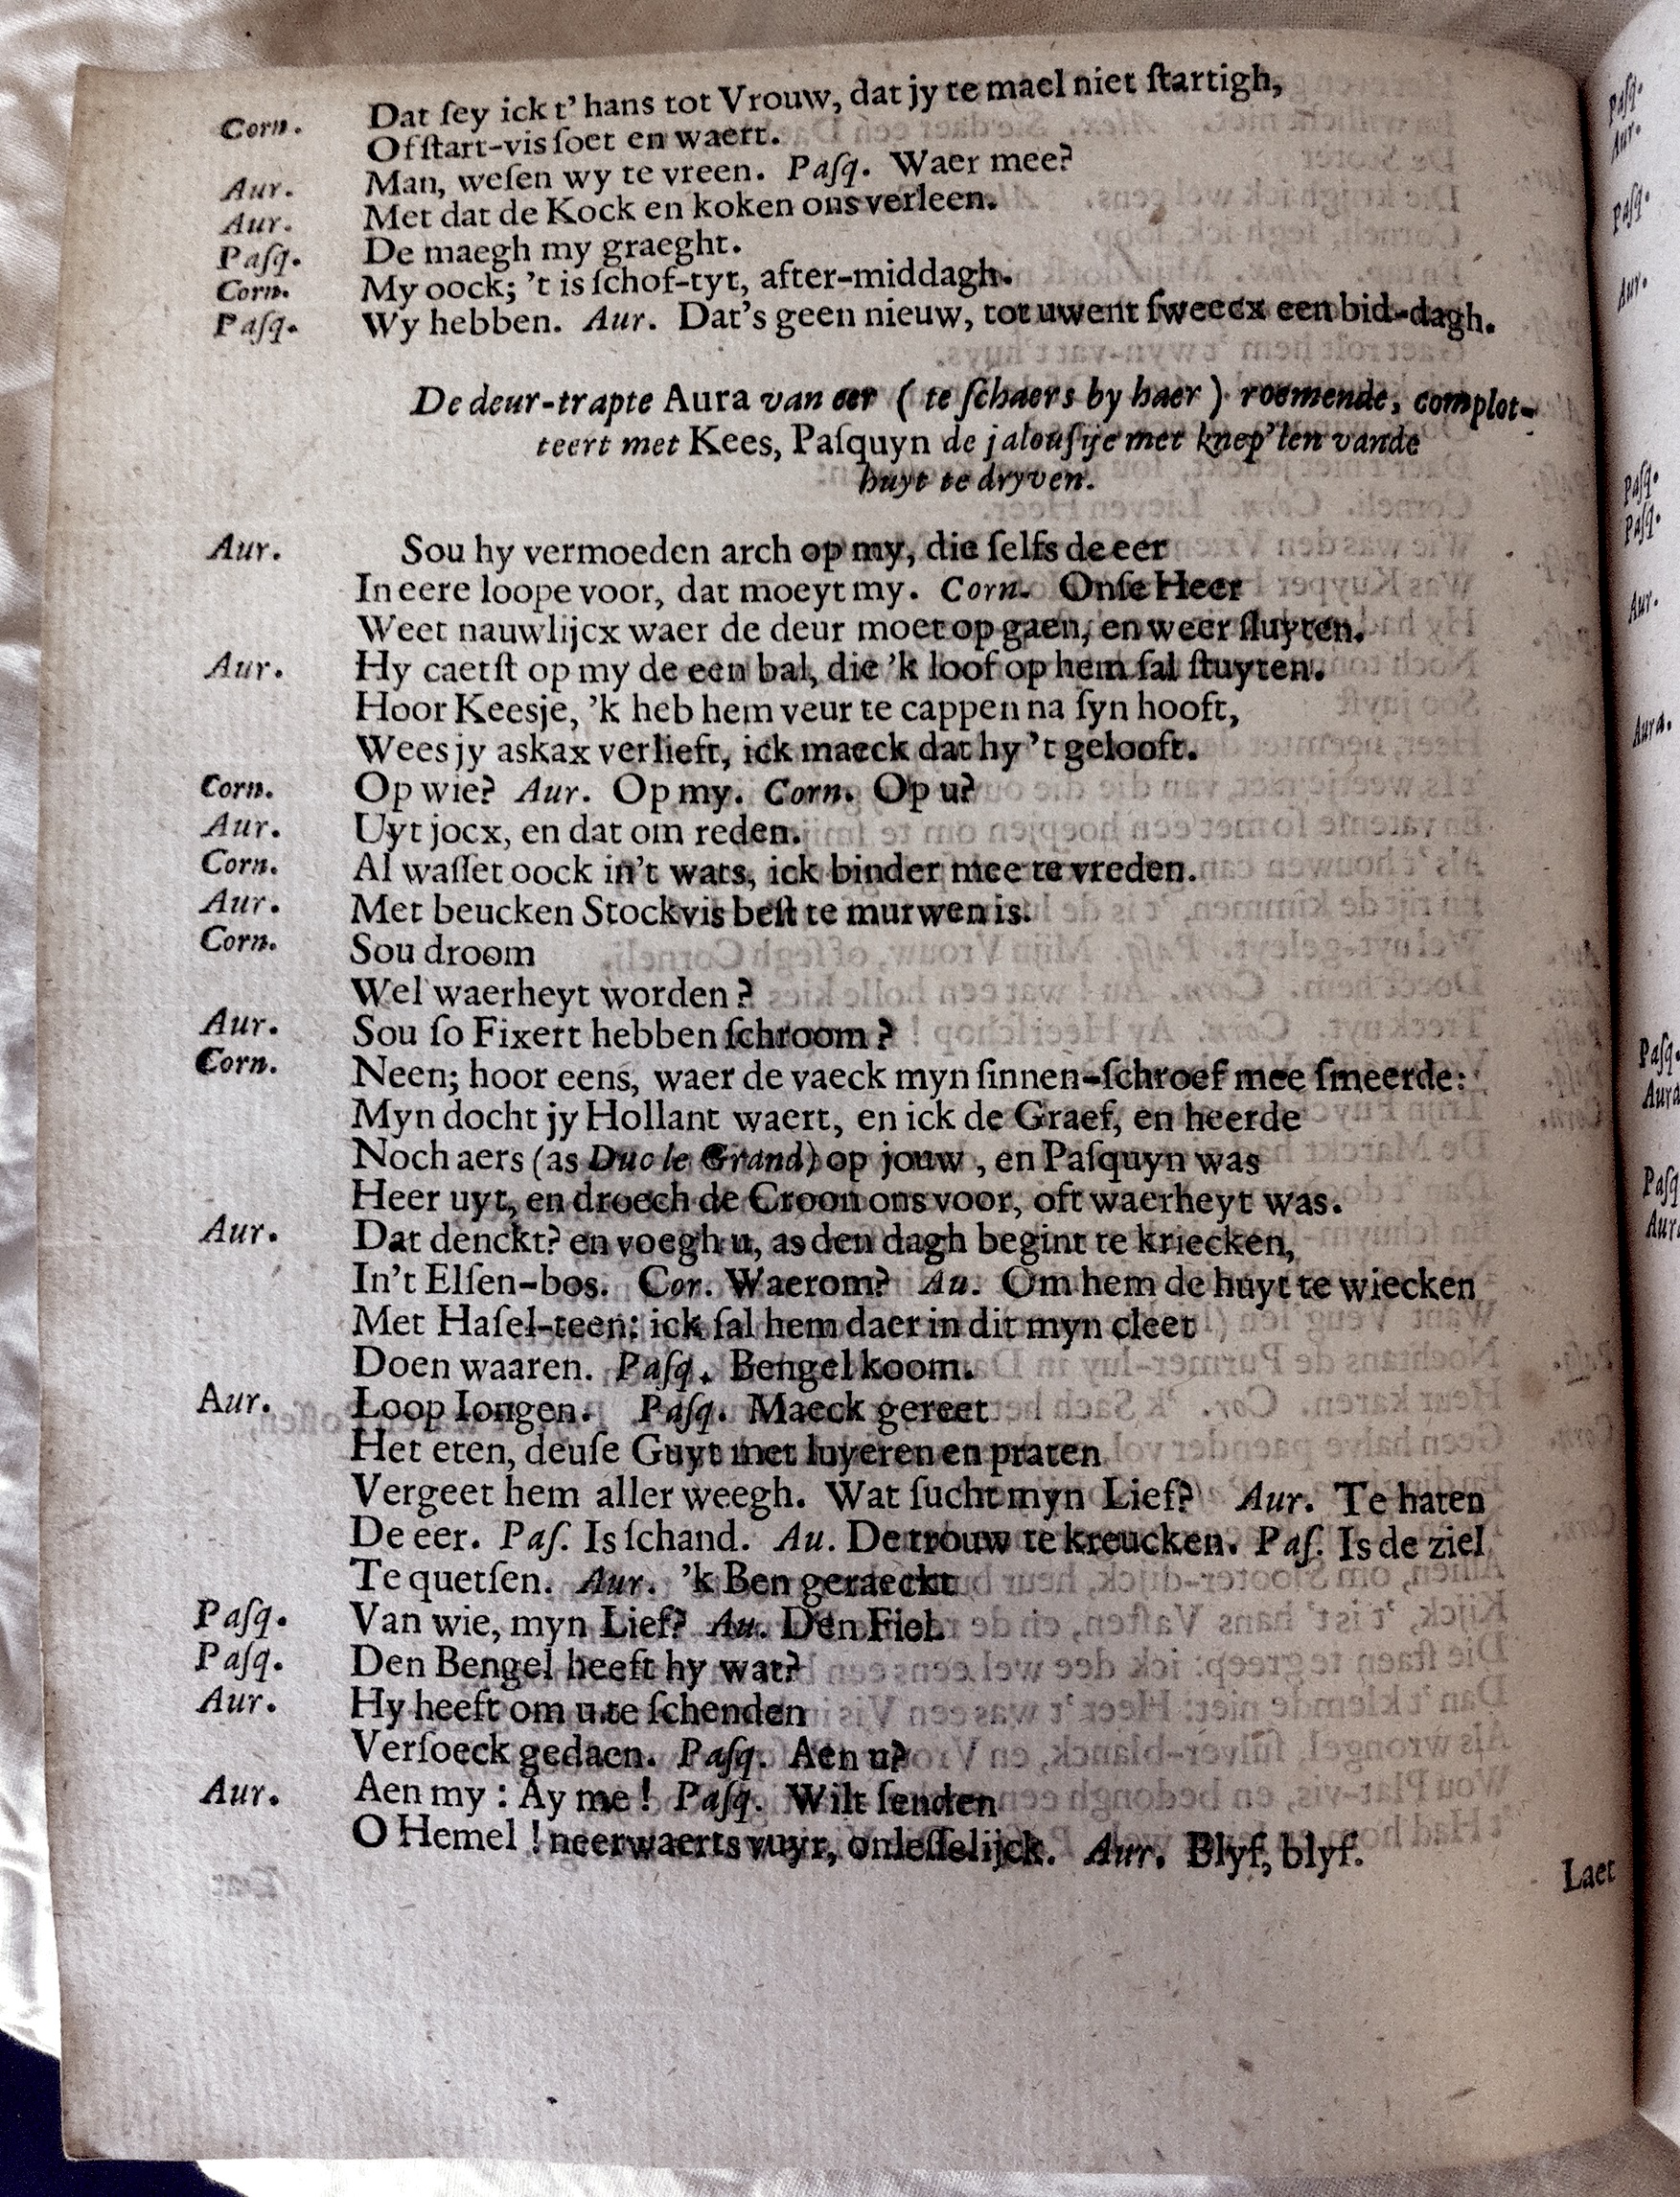 Dat ſey ick t'hans tot Vrouw, dat jy te mael niet ſtartigh,
Corn. Of ſtart-vis ſoet en waert.
Aur. Man, weſen wy te vreen. Paſq. Waer mee?
Aur. Met dat de Kock en koken ons verleen.
Paſq. De maegh my graeght.
Corn. My oock; 't is ſchof-tyt, after-middagh.
Paſq. Wy hebben. Aur. Dat's geen nieuw, tot uwent ſweecx een bid-dagh.
De deur-trapte Aura van eer ( te ſchaers by haer ) roemende, complot-
teert met Kees, Paſquyn de jalouſije met knep'len vande
huyt te dryven.
Aur. Sou hy vermoeden arch op my, die ſelfs de eer
In eere loope voor, dat moeyt my. Corn. Onſe Heer
Weet nauwlijcx waer de deur moet op gaen, en weer ſluyten.
Aur. Hy caetſt op my de een bal, die 'k loof op hem ſal ſtuyten.
Hoor Keesje, 'k heb hem veur te cappen na ſyn hooft,
Wees jy askax verlieft, ick maeck dat hy 't gelooft.
Corn. Op wie? Aur. Op my. Corn. Op u?
Aur. Uyt jocx, en dat om reden.
Corn. Al waſſet oock in't wats, ick binder mee te vreden.
Aur. Met beucken Stockvis beſt te murwen is.
Corn. Sou droom
Wel waerheyt worden?
Aur. Sou ſo Fixert hebben ſchroom?
Corn. Neen; hoor eens, waer de vaeck myn ſinnen-ſchroef mee ſmeerde:
Myn docht jy Hollant waert, en ick de Graef, en heerde
Noch aers (as Duc le Grand) op jouw, en Paſquyn was
Heer uyt, en droech de Croon ons voor, oft waerheyt was.
Aur. Dat denckt? en voegh u, as den dagh begint te kriecken,
In't Elſen-bos. Cor. Waerom? Au. Om hem de huyt te wiecken
Met Haſel-teen: ick ſal hem daer in dit myn cleet
Doen waaren. Paſq. Bengel koom.
Aur. Loop Iongen. Paſq. Maeck gereet
Het eten, deuſe Guyt met luyeren en praten
Vergeet hem aller weegh. Wat ſucht myn Lief? Aur. Te haten
De eer. Paſ. Is ſchand. Au. De trouw te kreucken. Paſ. Is de ziel
Te quetſen. Aur. 'k Ben geraeckt
Paſq. Van wie, myn Lief? Au. Den Fiel.
Paſq. Den Bengel heeft hy wat?
Aur. Hy heeft om u te ſchenden
Verſoeck gedaen. Paſq. Aen u?
Aur. Aen my: Ay me! Paſq. Wilt ſenden
O Hemel! neerwaerts vuyr, onleſſelijck. Aur. Blyf, blyf.
Laet
Paſq.
Aur.
Paſq.
Aur.
Paſq.
Paſq.
Aur.
Aura.
Paſq.
Aura
Paſq
Aur.